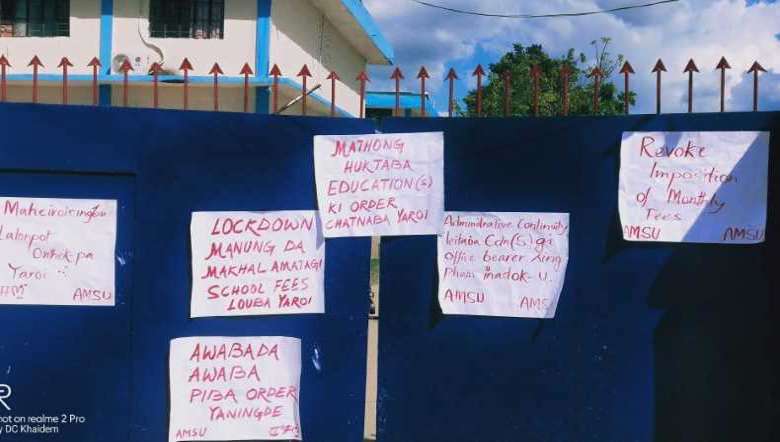 Maheiroisingbu
Lalonpot
Onthokpa
Yaroi
AMSU
LOCKDOWN
MANUNG DA
MAKHAL AMATAGI
SCHOOL FEES
LOUBA YAROI
AWABADA
AWABA
PIBA ORDER
YANINGDE
AMSU
MATHONG
HUKTABA
EDUCATION(S)
KI ORDER
CHATNABA YAROI
Administrative Continuity
leitaba Cdn(S) gi
Office bearer Sing
Pham thadok-U.
AMSU AMS
Revoke
Imposition
of Monthly
Fees
AMSU AMSU
hot on realme 2 Pro
y DC Khaidem